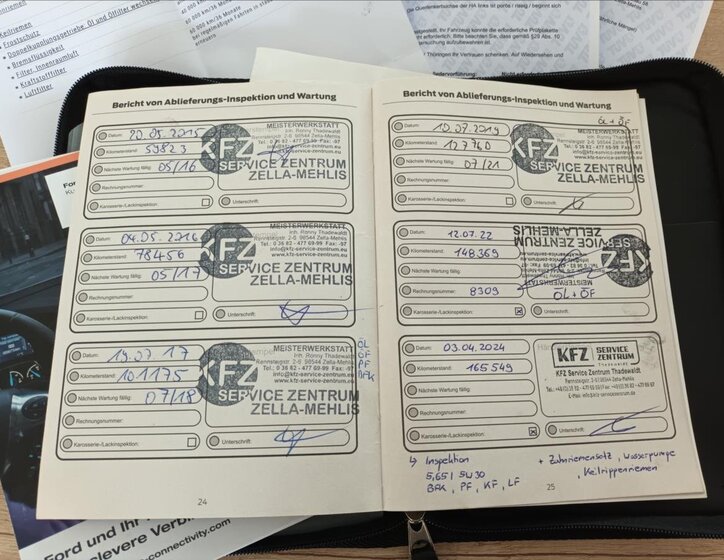 Keilriemen
Frostschutz
Doppelkupplungsgetriebe: Öl und Ölfilter wechseln
Bremsflüssigkeit
Filter, Innenraumluft
Kraftstofffilter
Luftfilter
60 000 km/36 Monate
Thüringen Ihr Vertrauen schenken. Auf Wiedersehen
Bericht von Ablieferungs-Inspektion und Wartung
Datum: 20.05.2015
Kilometerstand: 59823
Nächste Wartung fällig: 05/16
Rechnungsnummer:
Karosserie-/Lackinspektion:
Unterschrift:
MEISTERWERKSTATT
Inh. Ronny Thadewaldt
Rennsteigstr. 2-6 98544 Zella-Mehlis
Tel.: 0 36 82 - 477 69-99 Fax: -97
info@kfz-service-zentrum.eu
www.kfz-service-zentrum.eu
KFZ
SERVICE ZENTRUM
ZELLA-MEHLIS
Datum: 04.05.2016
Kilometerstand: 78456
Nächste Wartung fällig: 05/17
Rechnungsnummer:
Karosserie-/Lackinspektion:
Unterschrift:
MEISTERWERKSTATT
Inh. Ronny Thadewaldt
Rennsteigstr. 2-6 98544 Zella-Mehlis
Tel.: 0 36 82 - 477 69-99 Fax: -97
info@kfz-service-zentrum.eu
www.kfz-service-zentrum.eu
KFZ
SERVICE ZENTRUM
ZELLA-MEHLIS
Datum: 19.07.17
Kilometerstand: 101175
Nächste Wartung fällig: 07/18
Rechnungsnummer:
Karosserie-/Lackinspektion:
Unterschrift:
MEISTERWERKSTATT
Inh. Ronny Thadewaldt
Rennsteigstr. 2-6 98544 Zella-Mehlis
Tel.: 0 36 82 - 477 69-99 Fax: -97
info@kfz-service-zentrum.eu
www.kfz-service-zentrum.eu
KFZ
SERVICE ZENTRUM
ZELLA-MEHLIS
ÖL
ÖF
PF
BFK
24
Bericht von Ablieferungs-Inspektion und Wartung
ÖL + ÖF
Datum: 10.07.2019
Kilometerstand: 127740
Nächste Wartung fällig: 07/21
Rechnungsnummer:
Karosserie-/Lackinspektion:
Unterschrift:
MEISTERWERKSTATT
Inh. Ronny Thadewaldt
KFZ
SERVICE ZENTRUM
ZELLA-MEHLIS
Datum: 12.07.22
Kilometerstand: 148369
Nächste Wartung fällig:
Rechnungsnummer: 8309
Karosserie-/Lackinspektion:
Unterschrift:
KFZ
SERVICE ZENTRUM
ZELLA-MEHLIS
MEISTERWERKSTATT
ÖL + ÖF
Datum: 03.04.2024
Kilometerstand: 165549
Nächste Wartung fällig:
Rechnungsnummer:
Karosserie-/Lackinspektion:
Unterschrift:
KFZ SERVICE ZENTRUM
Thadewaldt
KFZ Service Zentrum Thadewaldt
↳ Inspektion
5,65l 5W30
BFK, PF, KF, LF
+ Zahnriemensatz, Wasserpumpe
, Keilrippenriemen
25
Ford und Ihr